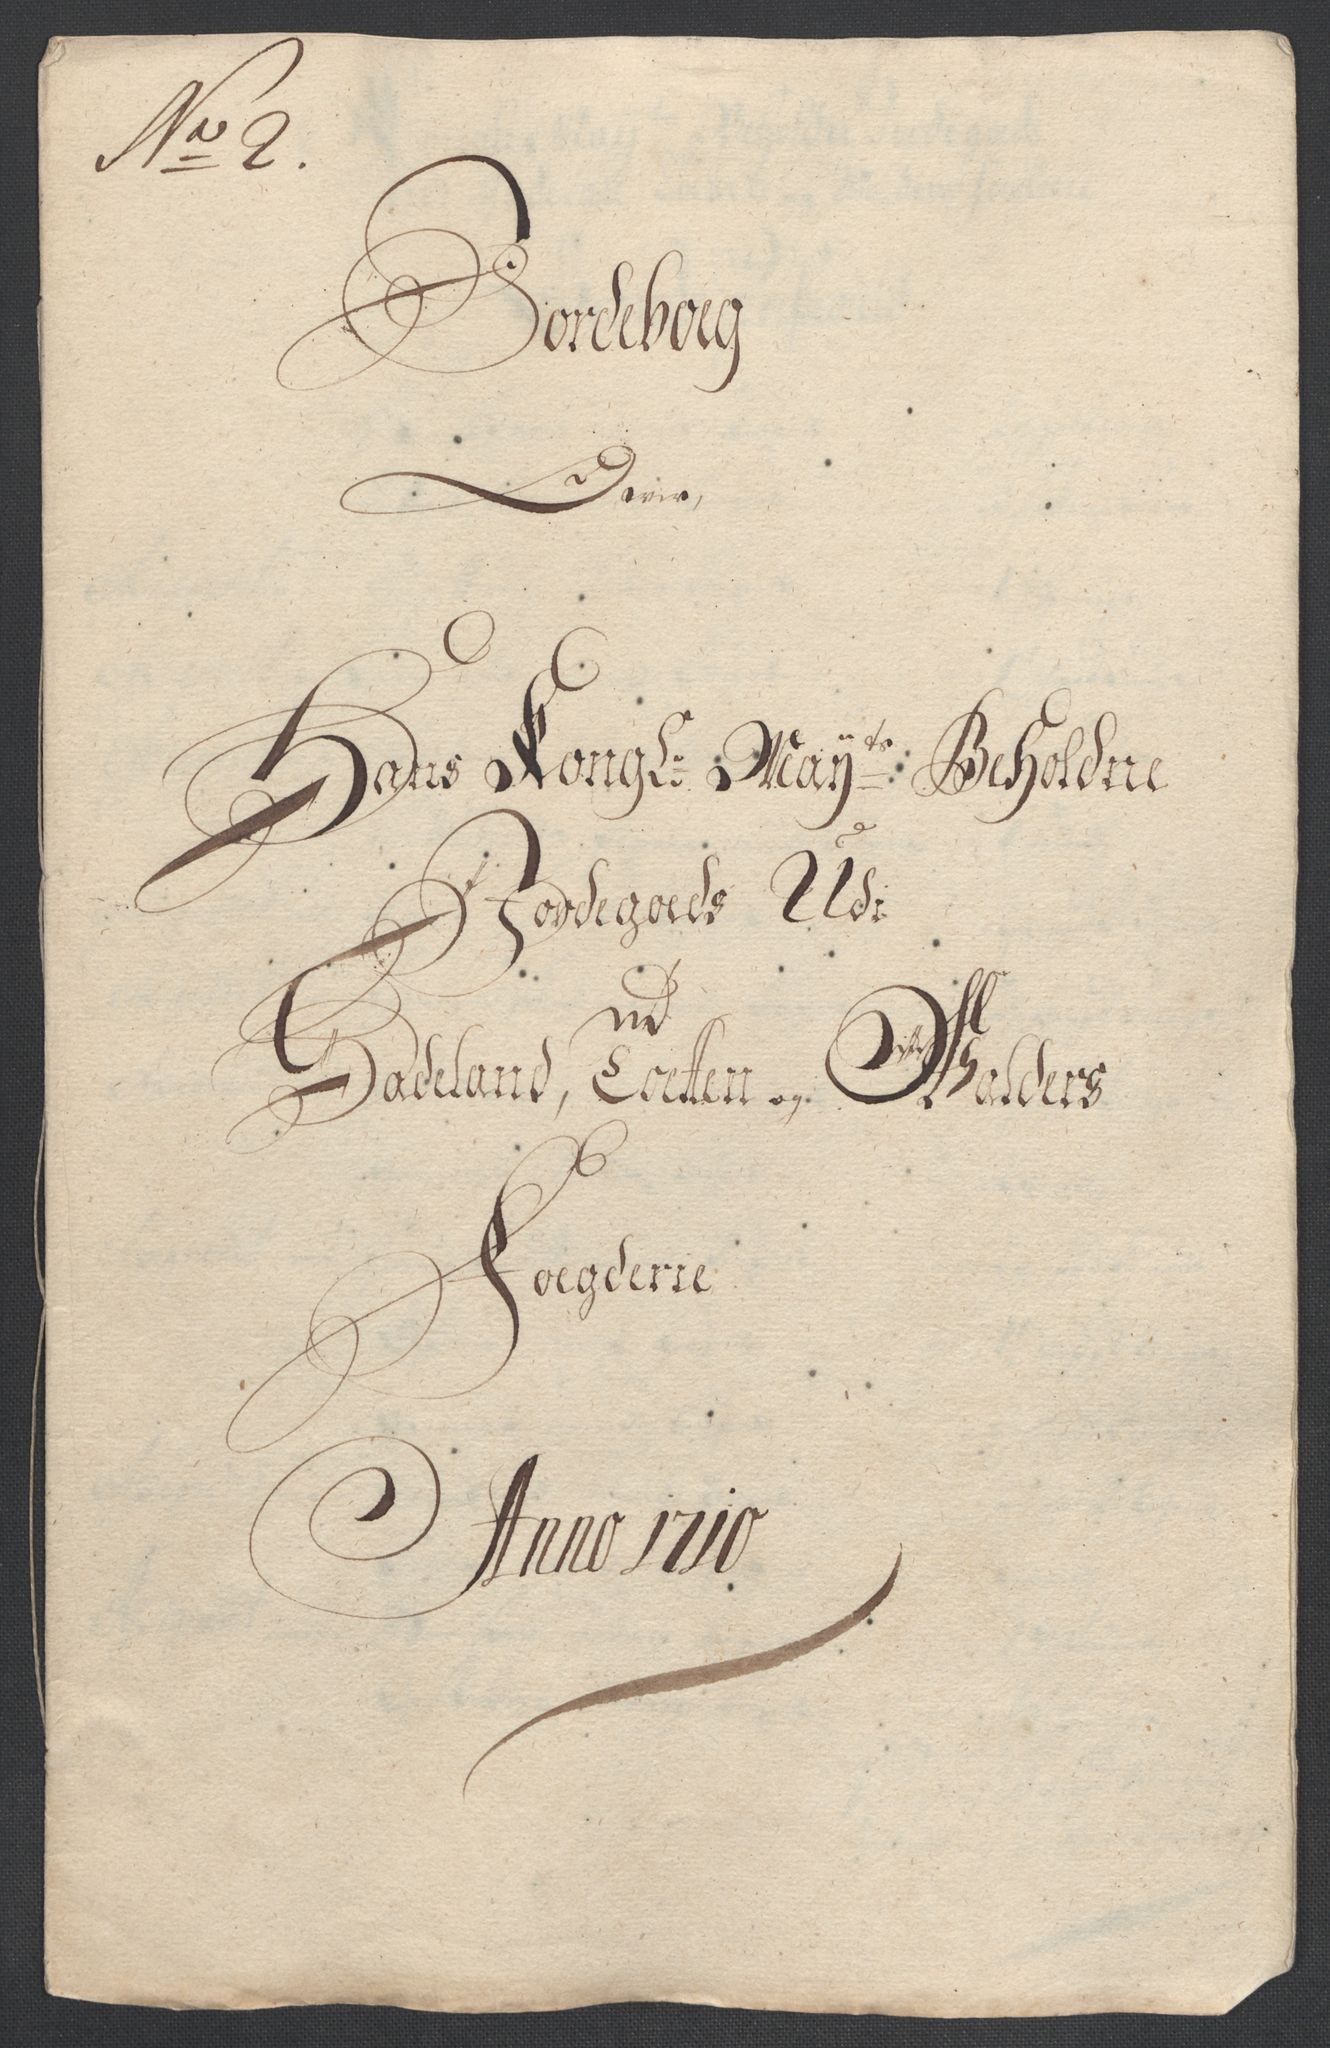 No 2.
Jordeboeg
Over,
Hans Kongl: Mayts: Beholdne
Jordegoeds Udi
Hadeland, Toetten og Walders
Foegderie
Anno 1710